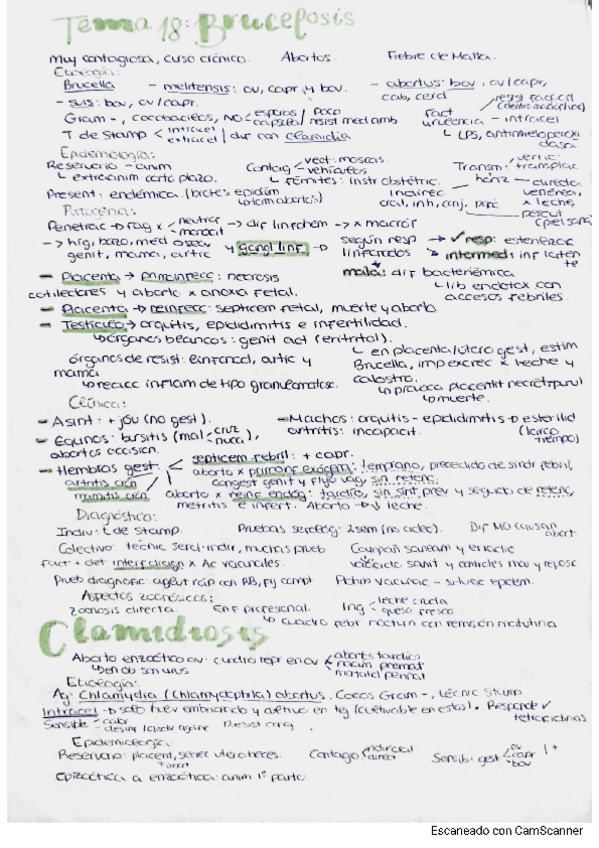 Tema 18: Brucelosis
muy contagiosa, curso crónico. Abortos. Fiebre de Malta.
Etiología:
Brucella - melitensis: ov, capr y bov. - abortus: bov, ov/capr,
cab, cerd
- suis: bov, ov/capr.
Gram -, cocobacilos, NO esporas / cápsula / poca resist med amb
resist factor d (dentro macrófago)
Fact virulencia - intracel
T de Stamp intracel / extracel / dif con clamidia
LPS, antimieloperoxidasa
Epidemiología:
Reservorio - anim
↳ extraanim corto plazo.
Contag vect: moscas. vehículos
↳ fómites: instr obstétric.
Transm: vertic: transplac
horiz directa venérea, x leche
indirec oral, inh, conj, percut (piel sana)
Present: endémica. (brotes epidém
↳ torm abortos)
Patogenia:
Penetrac → fag x neutróf monocit → dif linfohem → x macróf
→ híg, bazo, med ósea, genit, mama, artic y gangl linf. → según resp linfocitos
→ ✓ resp: esteriliz
intermed: inf latente
mala: dif bacteriémica
↳ lib endotox con accesos febriles.
- Placenta → primoinfecc: necrosis
cotiledones y aborto x anoxia fetal.
- Placenta → reinfecc: septicem fetal, muerte y aborto.
- Testículo → orquitis, epididimitis e infertilidad.
↳ órganos blancos: genit act (eritritol).
↳ en placenta/útero gest, estim Brucella, imp excrec x leche y calostro.
↳ provoca placentit necróticopurul
↳ muerte.
órganos de resist: bazo, artic y mama
↳ reacc inflam de tipo granulomatosc.
Clínica:
- Asint: + jov (no gest).
- Machos: orquitis - epididimitis → esterilid (largo tiempo)
artritis: incapacit.
- Equinos: bursitis (mal cruz nuca), abortos occision.
- Hembras gest septicem febril: + capr.
artritis crón
mamitis crón
aborto x primoinf exógena: temprano, precedido de síndr febril,
congest genit y flujo vag, sin retenc.
aborto x reinf endóg: tardío, sin sínt prev y seguido de retenc,
metritis e infert. Aborto → ↓ leche.
Diagnóstico:
Indiv: t de stamp. Pruebas serológ: 2 sem (no adec). Dif MO causan abort.
Colectivo: técnic serol indir, muchas prueb
Campañ saneam y erradic
fact + det interf diagn x Ac vacunales.
Prueb diagnóstic: aglut ráp con RB, fij compl
Aspectos zoonósicos:
Zoonosis directa. Enf profesional. Ing leche cruda queso fresco
↳ cuadro febr nocturn con remisión matutina
Clamidiosis
Aborto enzoótico ov: cuadro repr en ov abortos tardíos
nacim premat
mortalid perinat
Etiología:
Ag: Chlamydia (Chlamydophila) abortus. Cocos Gram -, técnic Stamp
Intracel → solo huev embrionado y cultivo en tej (cultivable en estas). Responde ✓ tetraciclinas.
Sensible calor
Epidemiología:
Reservorio: placent, secrec uteroheces. Contagio indirecta directa Sensib: gest ov capr bov
+ abort
Epizoótica a enzoótica: anim 1º parto.
Escaneado con CamScanner